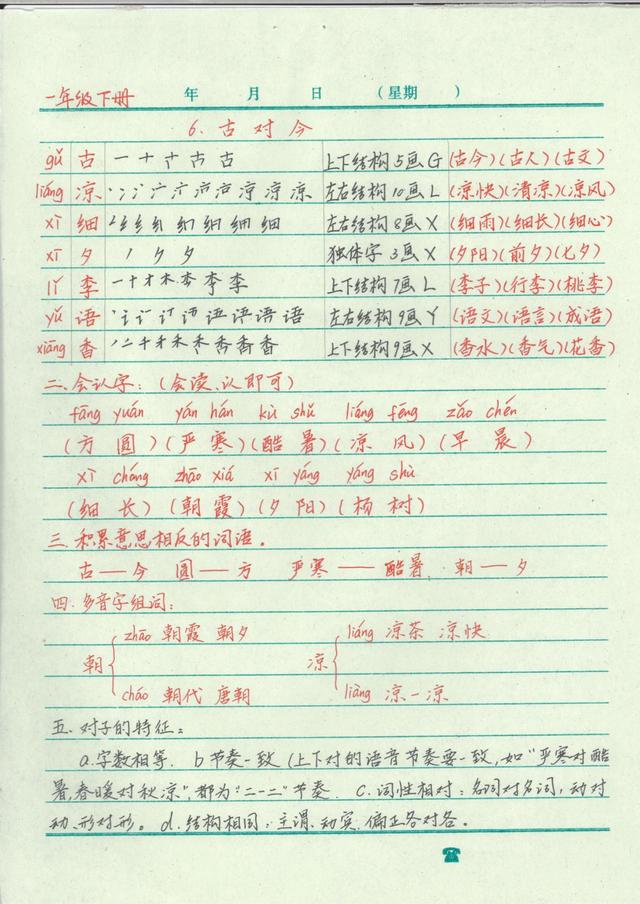 一年级下册 年 月 日 (星期 )
6. 古对今
gǔ 古 上下结构 5画 G (古今)(古人)(古文)
liáng 凉 左右结构 10画 L (凉快)(清凉)(凉风)
xī 细 左右结构 8画 X (细雨)(细长)(细心)
xī 夕 独体字 3画 X (夕阳)(前夕)(七夕)
lǐ 李 上下结构 7画 L (李子)(行李)(桃李)
yǔ 语 左右结构 9画 Y (语文)(语言)(成语)
xiāng 香 上下结构 9画 X (香水)(香气)(花香)
二.会认字:(会读、认即可)
fāng yuán yán hán kù shǔ liáng fēng zǎo chén
(方圆)(严寒)(酷暑)(凉风)(早晨)
xī cháng zhāo xiá xī yáng yáng shù
(细长)(朝霞)(夕阳)(杨树)
三.积累意思相反的词语。
古—今 圆—方 严寒—酷暑 朝—夕
四.多音字组词:
zhāo 朝霞 朝夕 liáng 凉茶 凉快
朝 凉
cháo 朝代 唐朝 liàng 凉一凉
五.对子的特征:
a.字数相等. b 节奏一致(上下对的语音节奏要一致,如"严寒对酷
暑,春暖对秋凉",都为"二一二"节奏. c.词性相对:名词对名词,动对
动、形对形。d.结构相同:主谓、动宾、偏正各对各。